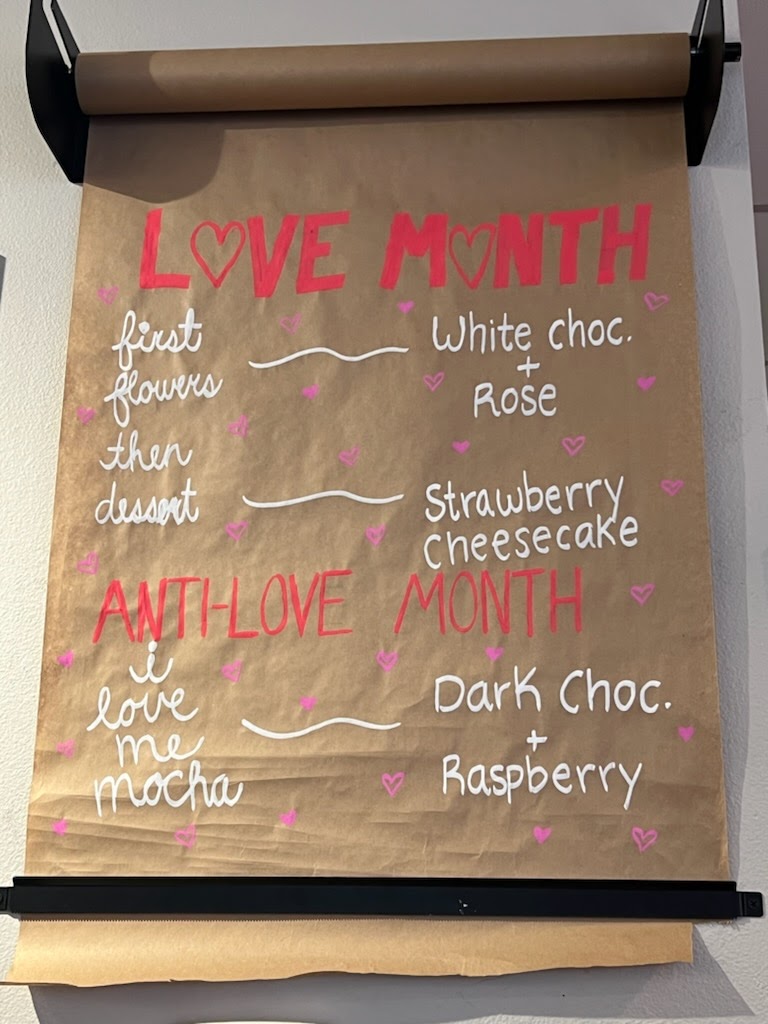 LOVE MONTH
first
flowers
White choc.
+
Rose
then
dessert
Strawberry
Cheesecake
ANTI-LOVE MONTH
i
love
me
mocha
Dark Choc.
+
Raspberry